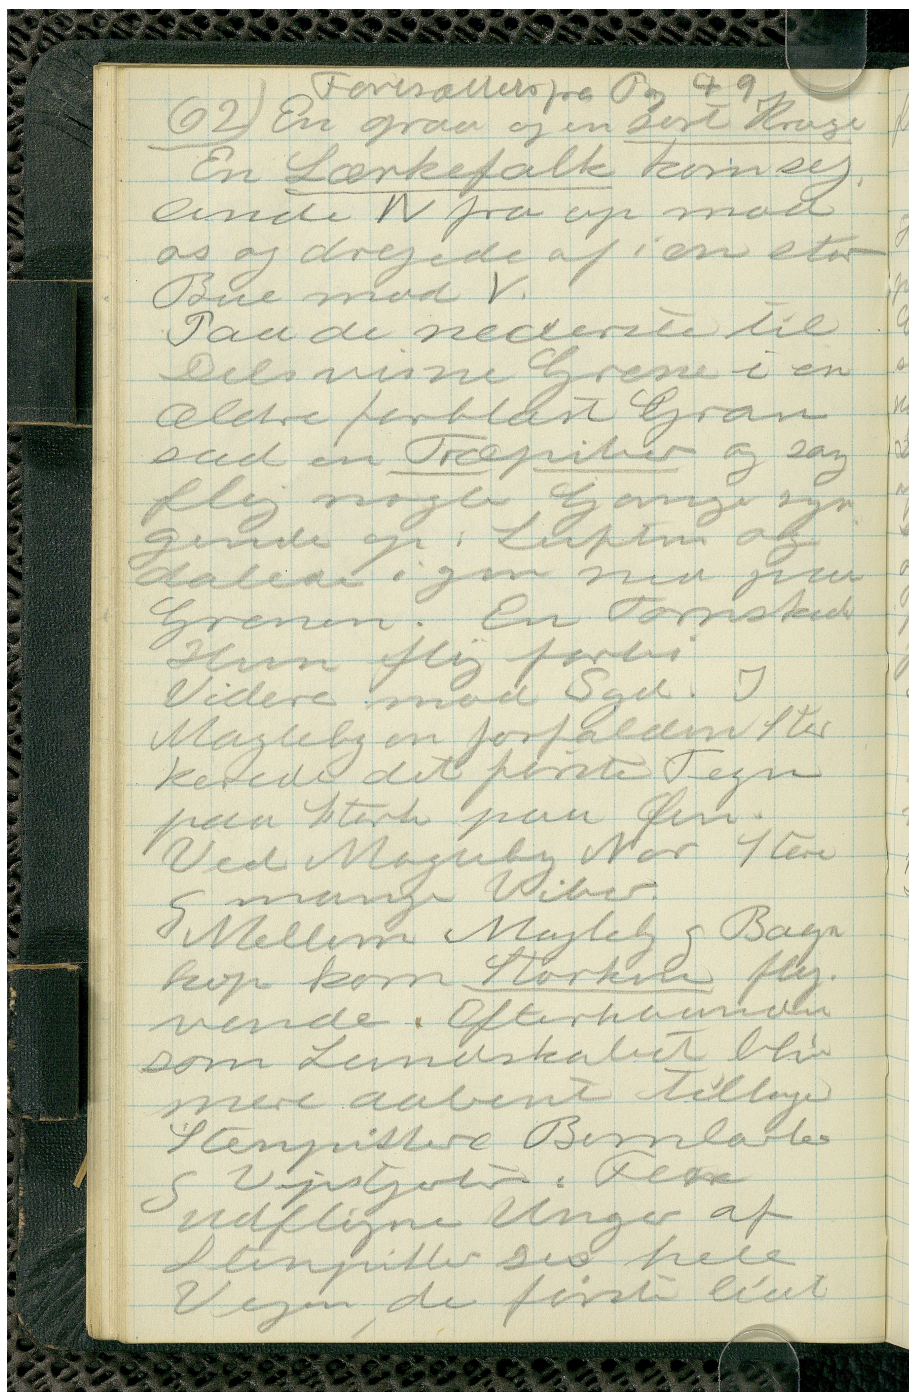 Fortsættes fra Pag 49
62) En graa og en sort Krage
En Lærkefalk kom sej,
lende N fra op mod
os og drejede af i en stor
Bue mod V.
Paa de nederste til
Dels visne Grene i en
ældre forblæst Gran
sad en Træpiber og sang
fløj nogle Gange syn
gende op i Luften og
dalede igen ned paa
Grenen. En Tornskade
Hun fløj forbi
Videre mod Syd. I
Magleby en forfalden Stor
kerede det første Tegn
paa Stork paa Øen.
Ved Magleby Nor Stære
& mange Viber.
Mellem Magleby & Bagn
kop kom Storken fly.
vende. Efterhaanden
som Landskabet bliv
mere aabent tiltager
Stenpikkere Bomlærker
& Vipstjerter. Flere
udfløjne Unger af
Stenpikker ses hele
Vejen, de første lidt